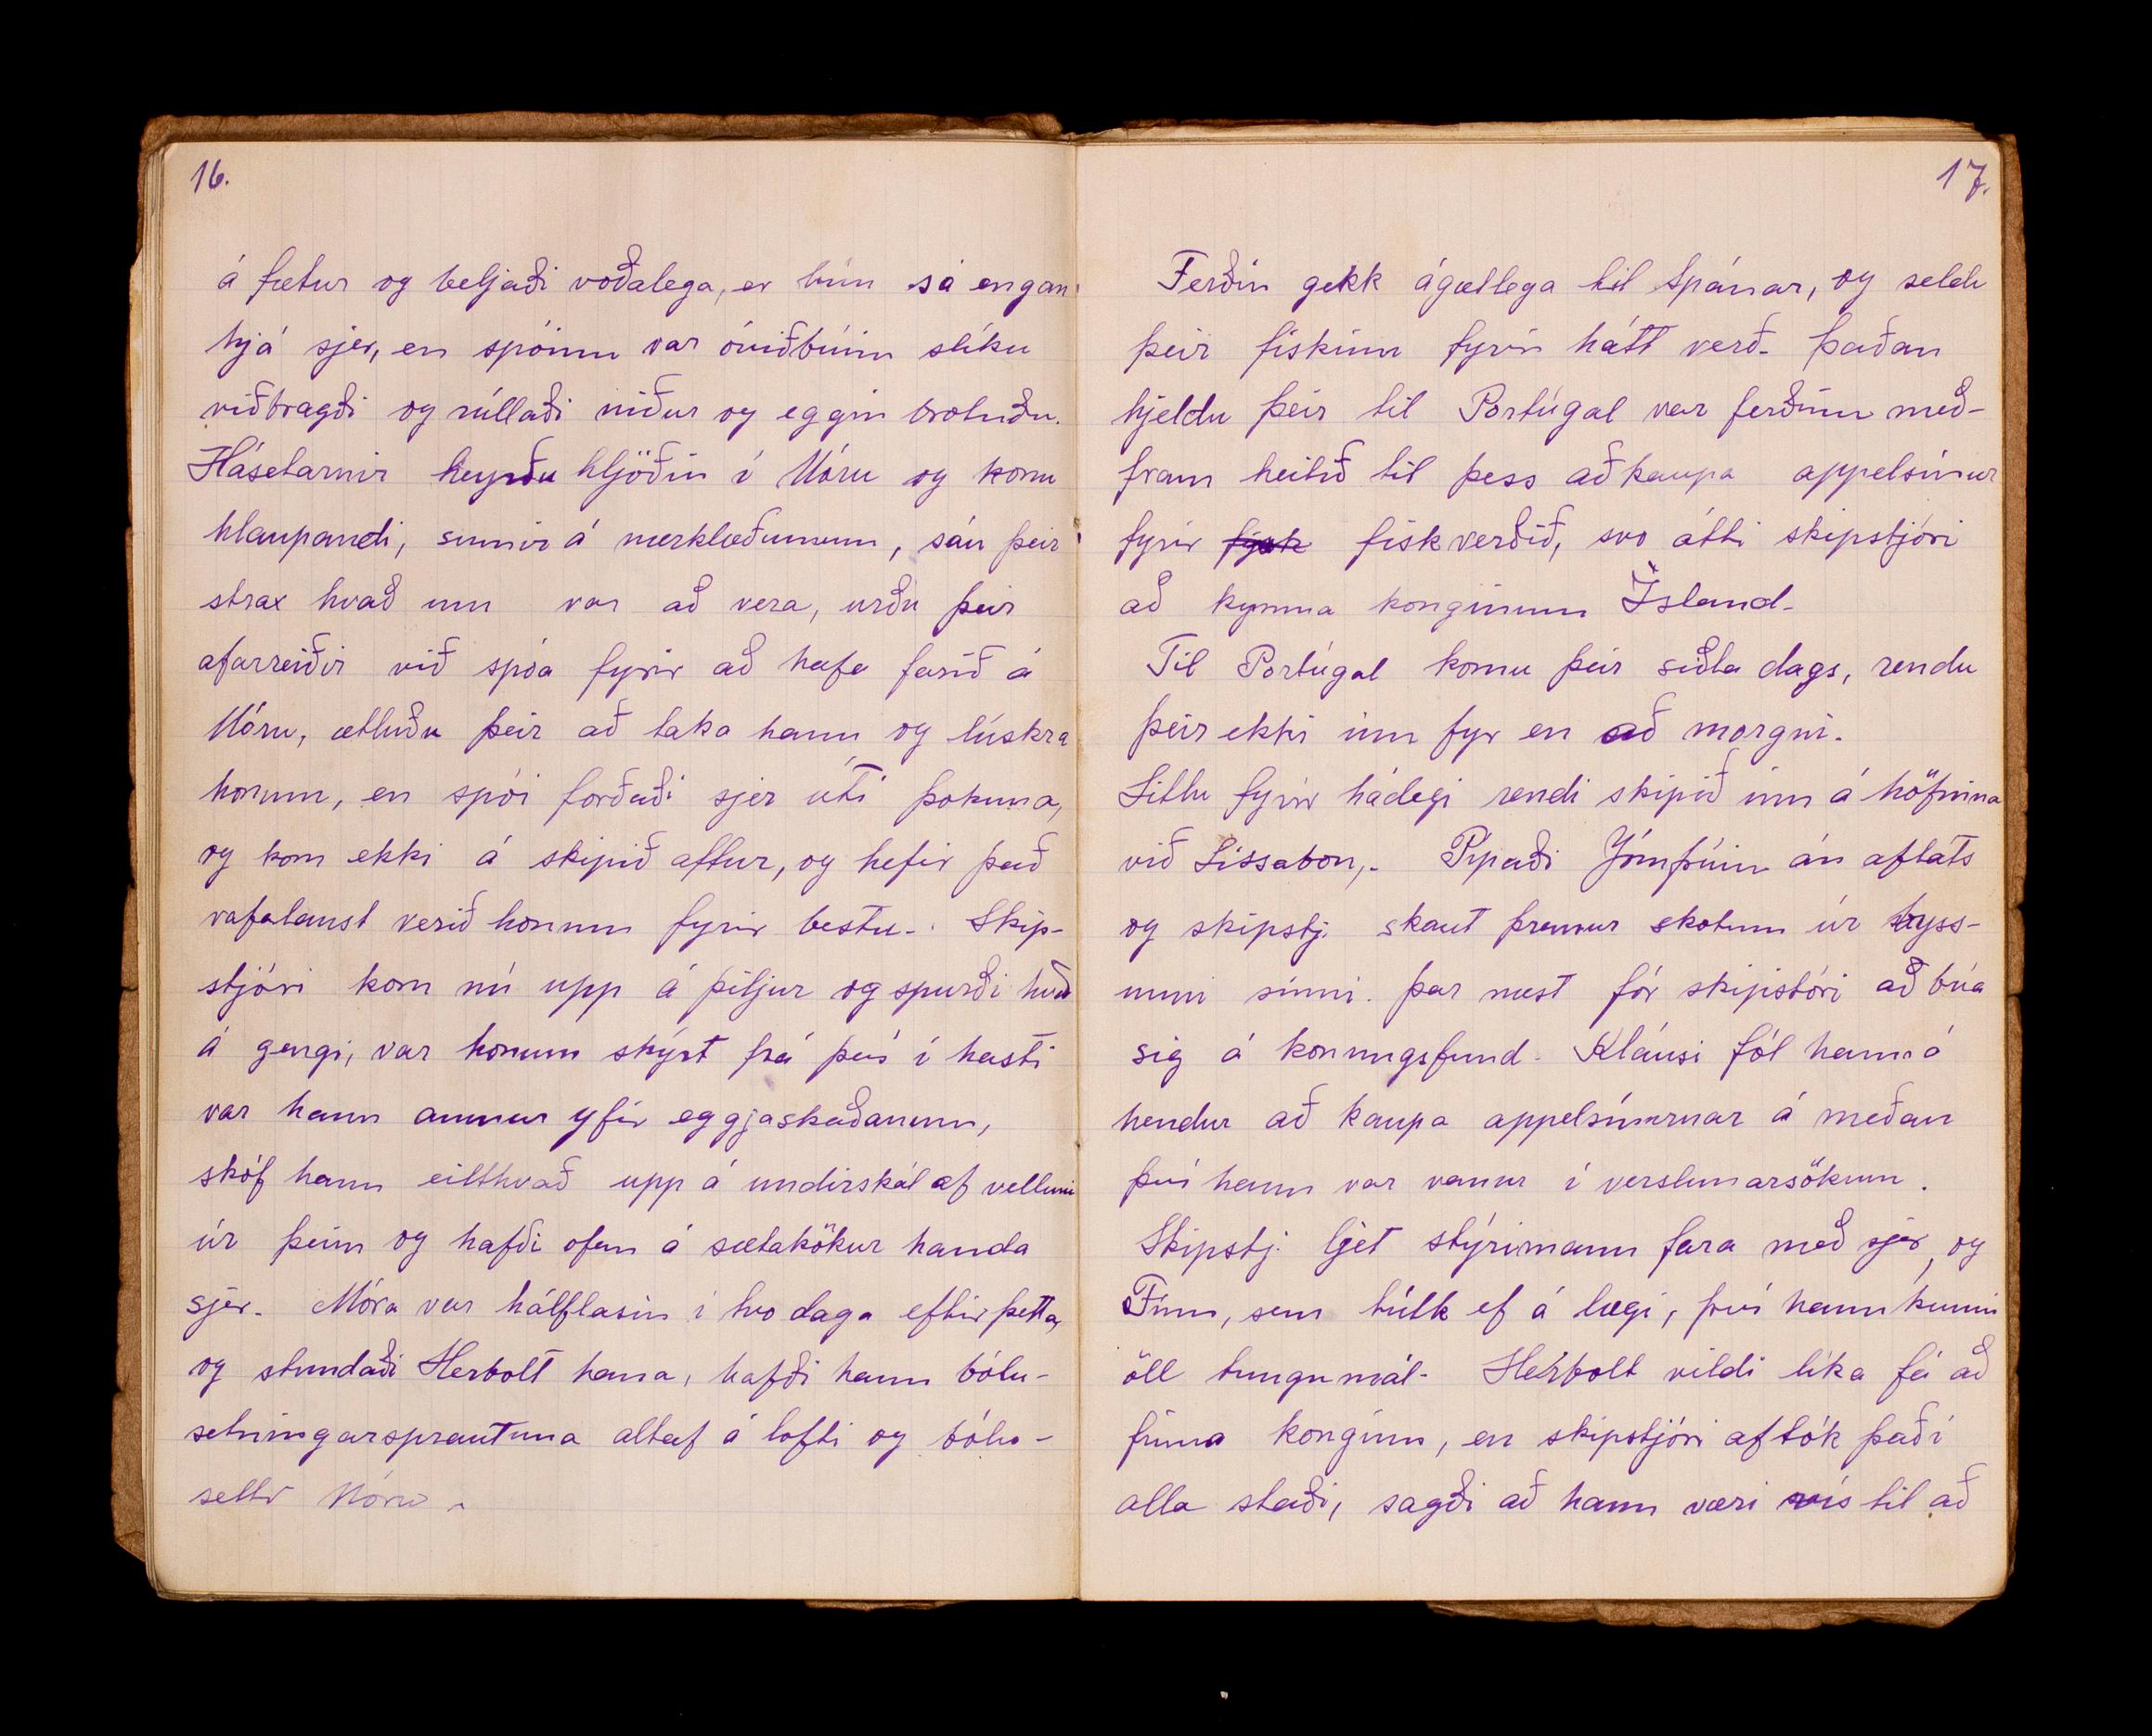 16.
á fætur og beljaði voðalega, er hún sá engan
hjá sjer, en spóinn var óviðbúinn slíku
viðbragði og rúllaði niður og eggin brotnuðu.
Hásetarnir heyrðu hljóðin í Móru og komu
hlaupandi, sumir á nærklæðunum, sáu þeir
strax hvað um var að vera, urðu þeir
afarreiðir við spóa fyrir að hafa farið á
Móru, ætluðu þeir að taka hann og lúskra
honum, en spói forðaði sjer útí þokuna,
og kom ekki á skipið aftur, og hefir það
vafalaust verið honum fyrir bestu-. Skip-
stjóri kom nú upp á þiljur og spurði hvað
á gengi, var honum skýrt frá því í hasti
var hann aumur yfir eggjaskaðanum,
skóf hann eitthvað upp á undirskál af vellumi
úr þeim og hafði ofan á sætakökur handa
sjer. Móra var hálflasin í tvo daga eftir þetta,
og stundaði Herbolt hana, hafði hann bólu-
setningarsprautuna altaf á lofti og bólu-
setti Móru.
17.
Ferðin gekk ágætlega til Spánar, og seldu
þeir fiskinn fyrir hátt verð- þaðan
hjeldu þeir til Portúgal var ferðinni með-
fram heitið til þess að kaupa appelsínur
fyrir fiskverðið, svo átti skipstjóri
að kynna konginum Ísland-
Til Portúgal komu þeir síðla dags, rendu
þeir ekki inn fyr en að morgni.
Litlu fyrir hádegi rendi skipið inn á höfnina
við Lissabon,. Pípaði Jómfrúin án afláts
og skipstj. skaut þremur skotum úr byss-
unni sinni. þar næst fór skipistóri að búa
sig á konungsfund- Kláusi fól hann á
hendur að kaupa appelsínurnar á meðan
því hann var vanur í verslunarsökum.
Skipstj. ljet stýrimann fara með sjer, og
Finn, sem túlk ef á lægi, því hann kunni
öll tungumál- Herbolt vildi líka fá að
finna konginn, en skipstjóri aftók það í
alla staði, sagði að hann væri vís til að